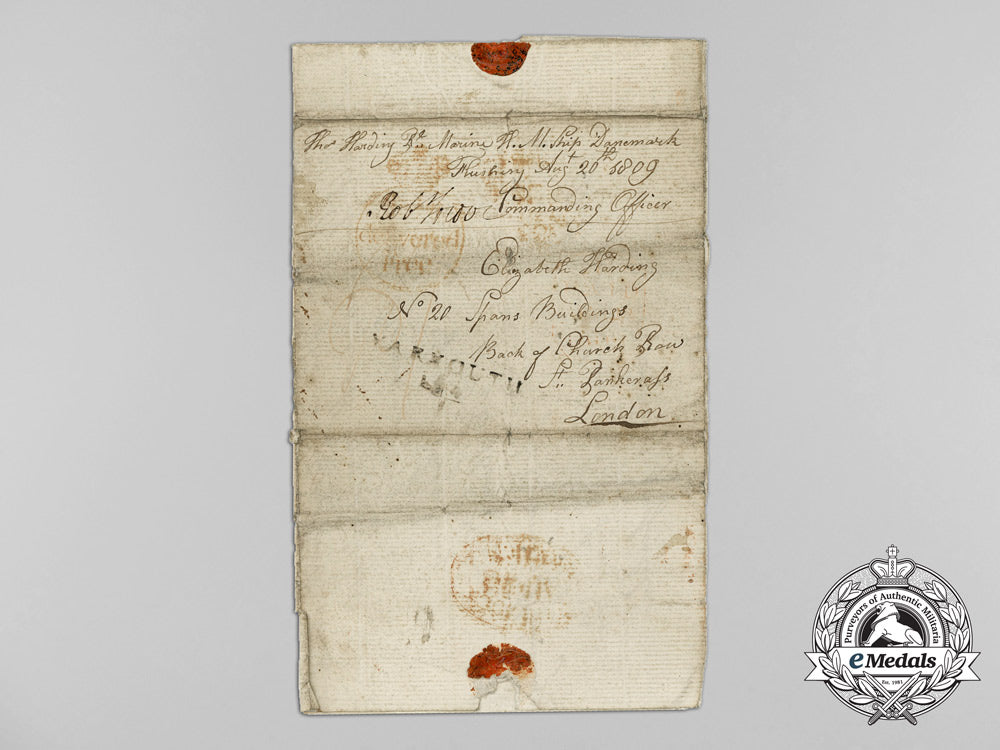 Thos Harding Pte Marine H. M. Ship Danemark
Flushing Augt 20th 1809
Robt Commanding Officer
delivered
Free
Elizabeth Harding
No 20 Spans Buildings
Back of Church Row
St. Pankerass
London
YARMOUTH
Purveyors of Authentic Militaria
eMedals
Est. 1981